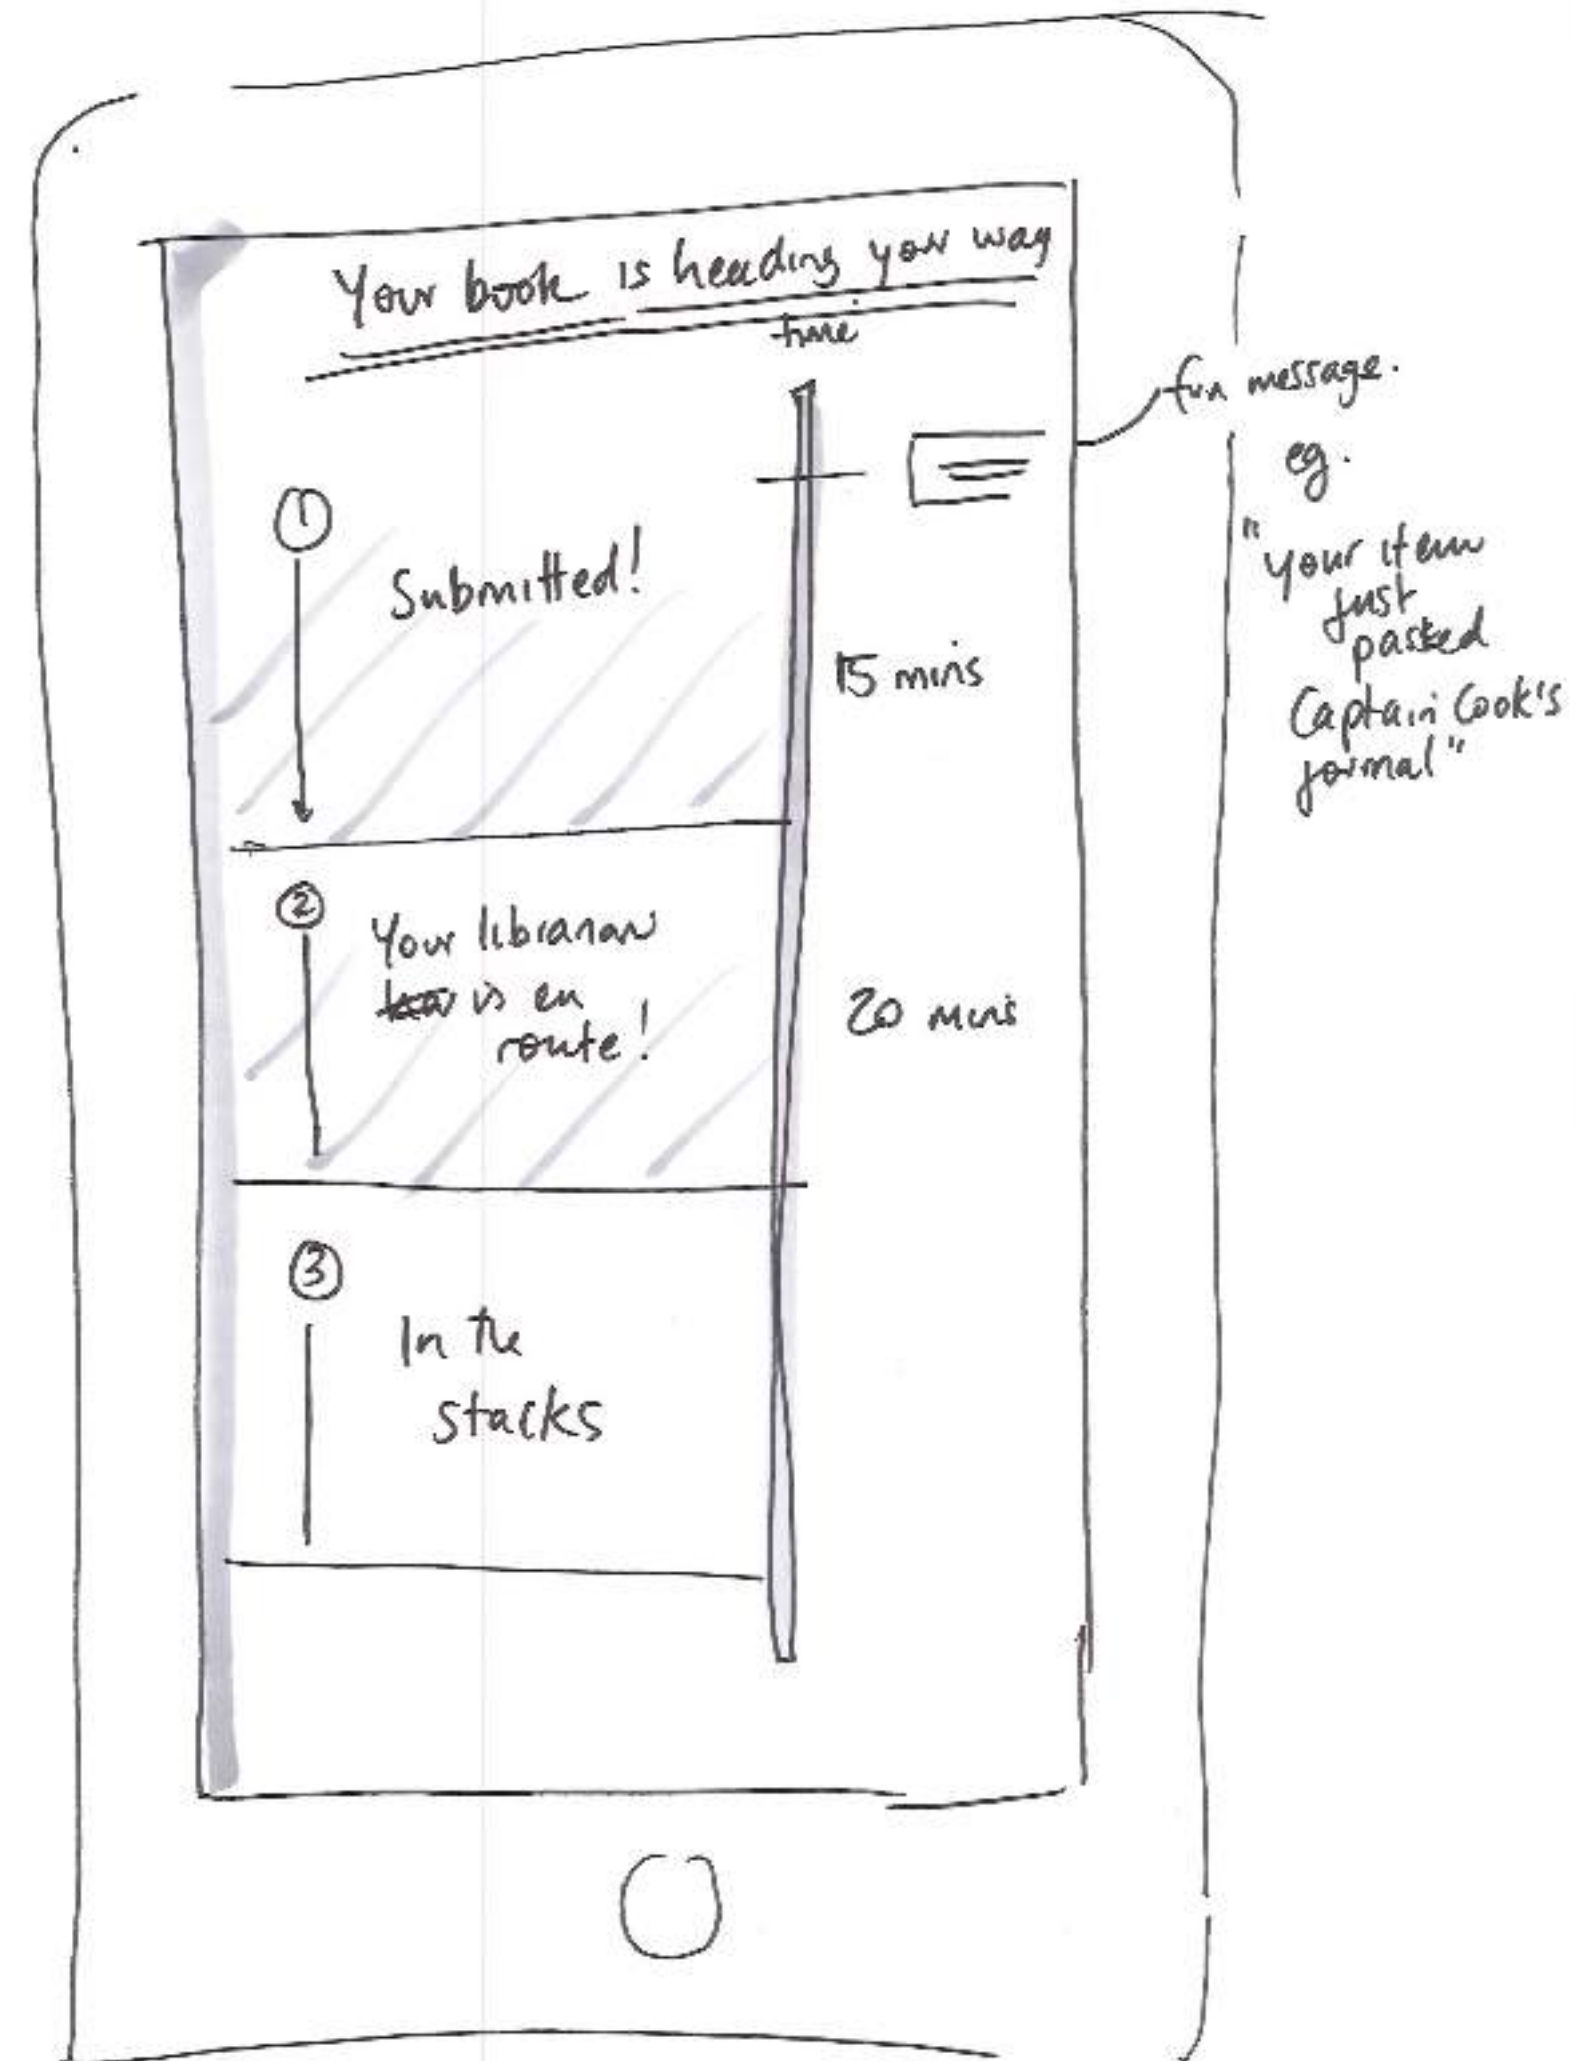 Your book is heading your way
time
fun message.
eg.
"your item
just
passed
Captain Cook's
jornal"
1
Submitted!
15 mins
2
Your librarian
is en
route!
20 mins
3
In the
stacks